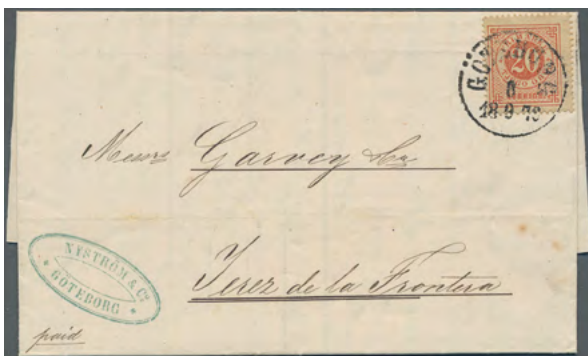 20
GÖTEBORG
18 9 78
Messrs Garvey &Co
Jerez de la Frontera
NYSTRÖM & Co
GÖTEBORG
paid